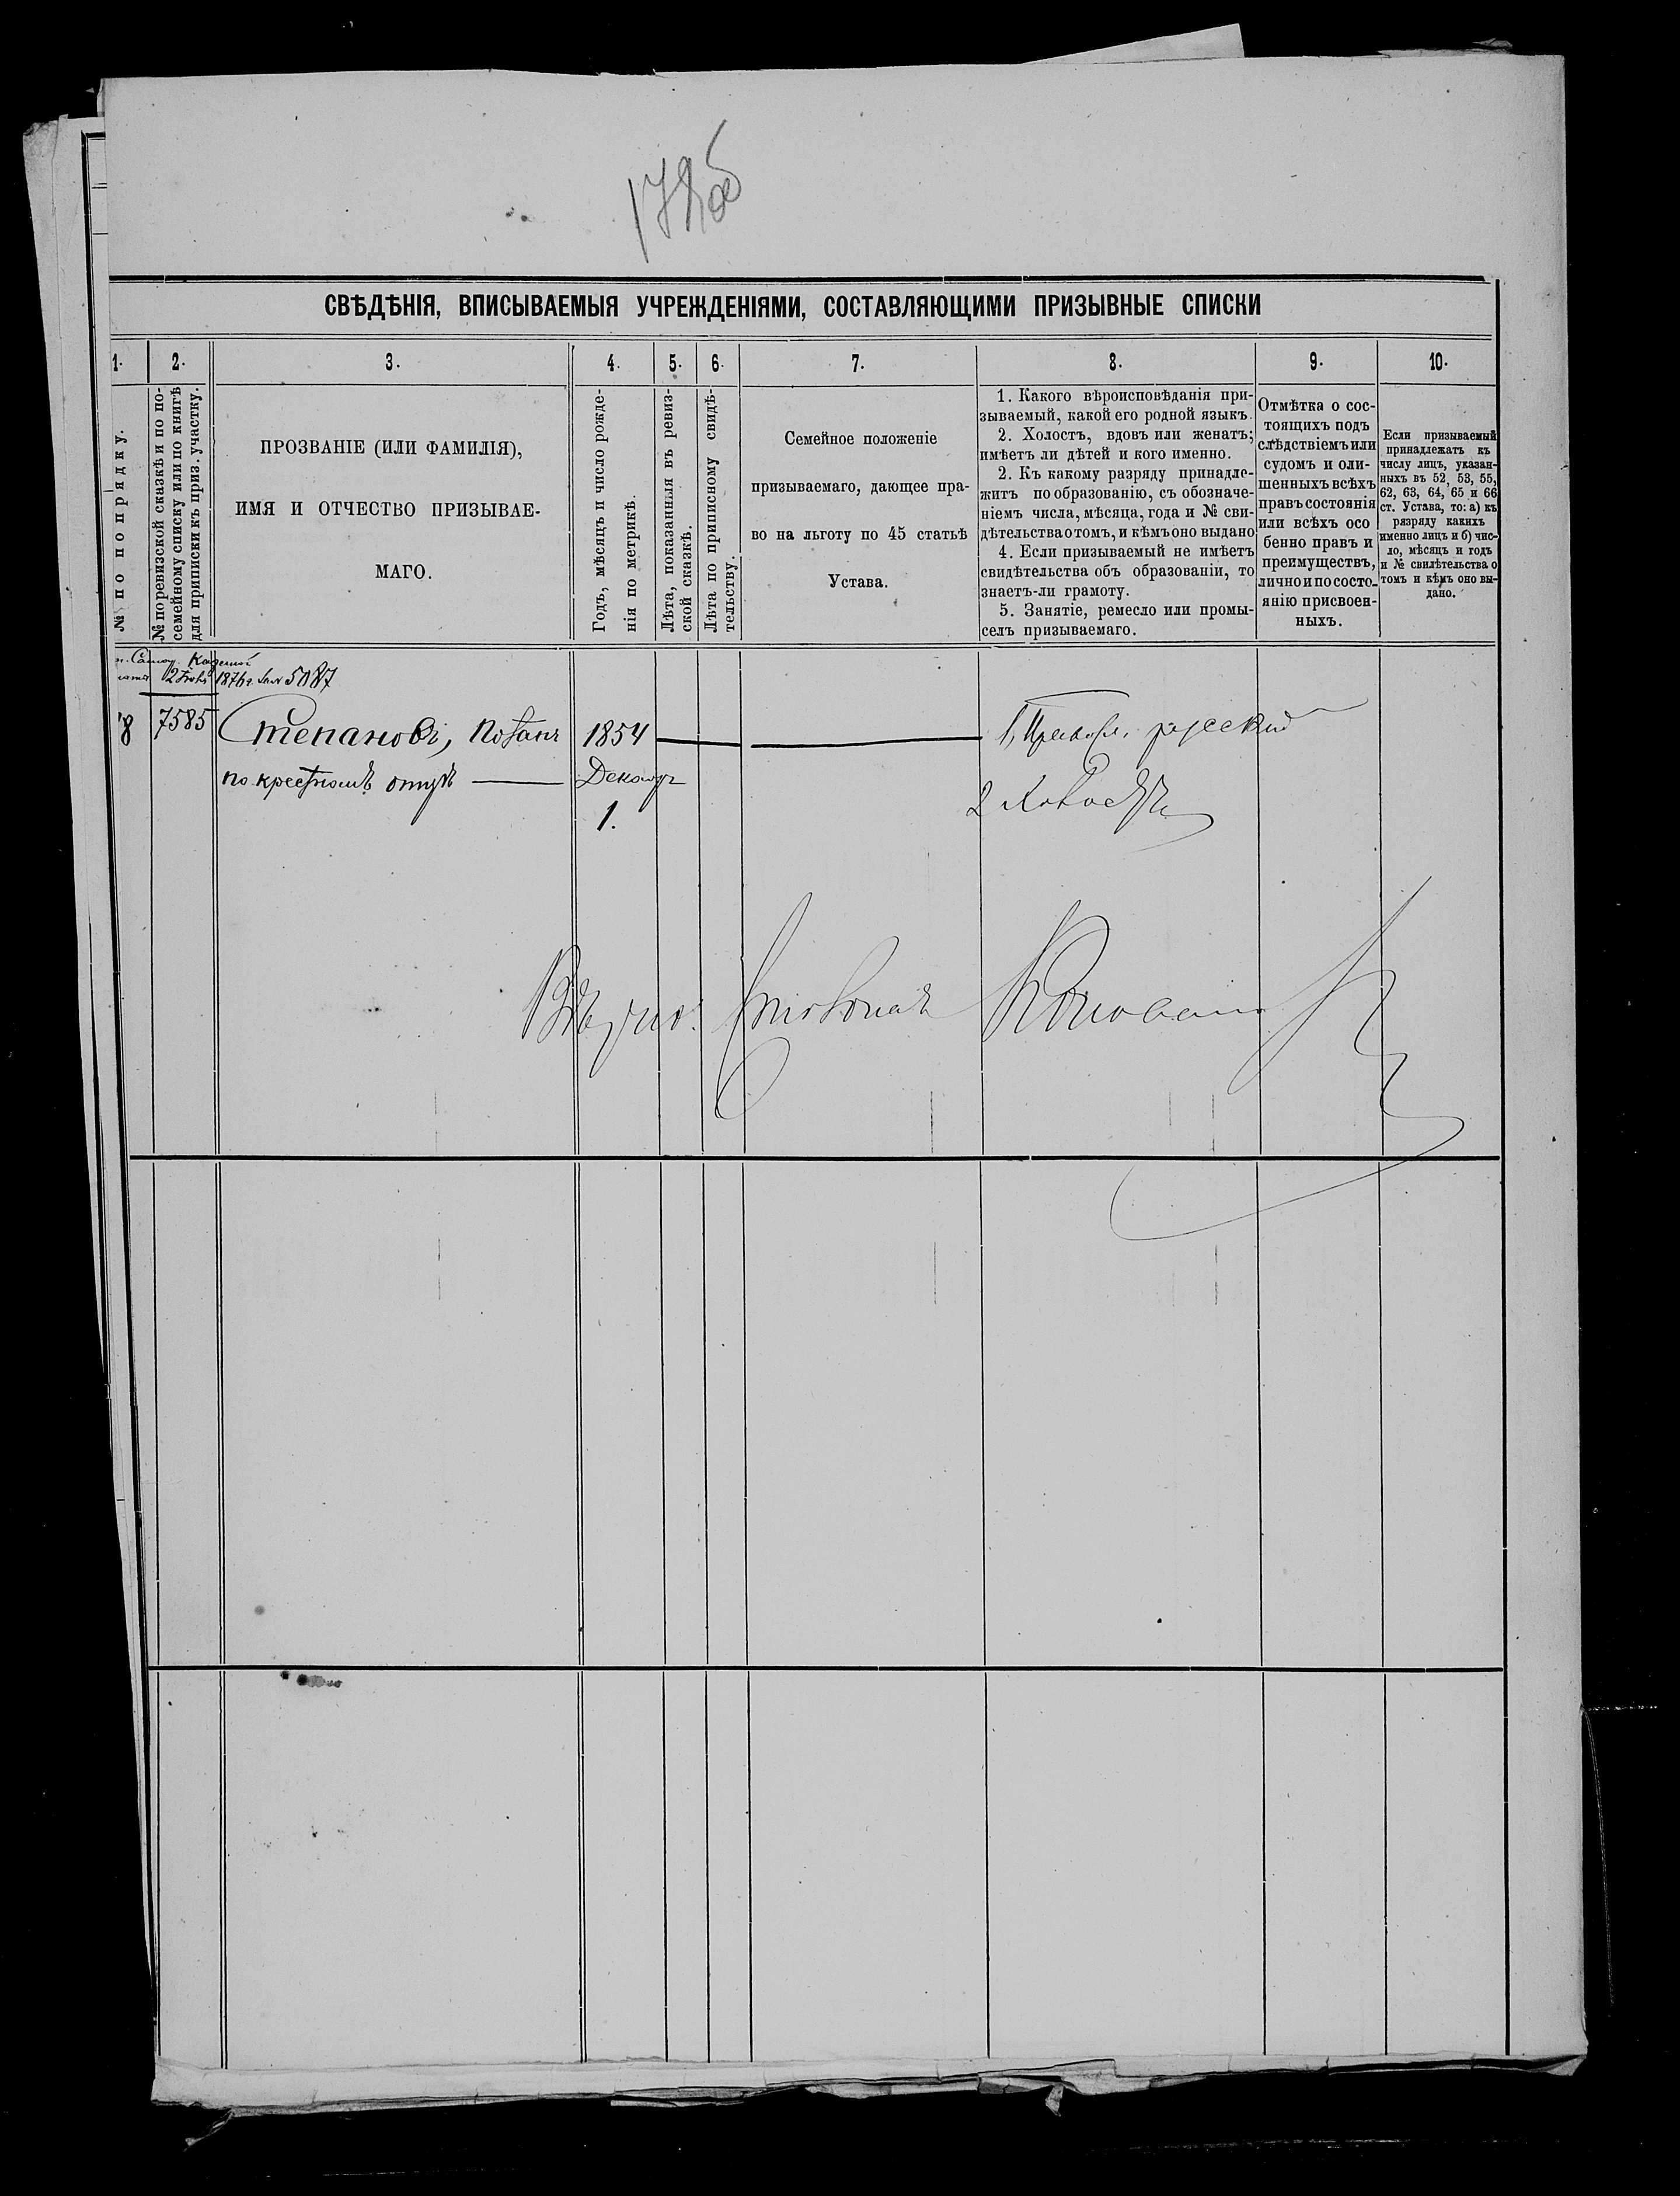 СВѢДѢНІЯ, ВПИСЫВАЕМЫЯ УЧРЕЖДЕНІЯМИ, СОСТАВЛЯЮЩИМИ ПРИЗЫВНЫЕ СПИСКИ
1.
2.
3.
4.
5.
6.
7.
8.
9.
10.
№ по порядку.
№ по ревизской сказкѣ и по по-
семейному списку или по книгѣ
для приписки къ приз. участку.
ПРОЗВАНІЕ (ИЛИ ФАМИЛІЯ),
ИМЯ И ОТЧЕСТВО ПРИЗЫВАЕ-
МАГО.
Годъ, мѣсяцъ и число рожде-
нія по метрикѣ.
Лѣта, показанныя въ ревиз-
ской сказкѣ.
Лѣта по приписному свидѣ-
тельству.
Семейное положеніе
призываемаго, дающее пра-
во на льготу по 45 статьѣ
Устава.
1. Какого вѣроисповѣданія при-
зываемый, какой его родной языкъ.
2. Холостъ, вдовъ или женатъ;
имѣетъ ли дѣтей и кого именно.
2. Къ какому разряду принадле-
житъ по образованію, съ обозначе-
ніемъ числа, мѣсяца, года и № сви-
дѣтельства о томъ, и кѣмъ оно выдано
4. Если призываемый не имѣетъ
свидѣтельства объ образованіи, то
знаетъ-ли грамоту.
5. Занятіе, ремесло или промы-
селъ призываемаго.
Отмѣтка о сос-
тоящихъ подъ
слѣдствіемъ или
судомъ и оли-
шенныхъ всѣхъ
правъ состоянія
или всѣхъ осо
бенно правъ и
преимуществъ,
лично и по состо-
янію присвоен-
ныхъ.
Если призываемый
принадлежатъ къ
числу лицъ, указан-
ныхъ въ 52, 53, 55,
62, 63, 64, 65 и 66
ст. Устава, то: а) къ
разряду какихъ
именно лицъ и б) чис-
ло, мѣсяцъ и годъ
и № свилѣтельства о
томъ и кѣмъ оно вы-
дано.
1876 г. 5087
8 7585 Степановъ, Потапъ 1854 1, Правосл. русскій
по крестному отцу Декабря 2 Холостъ
1.